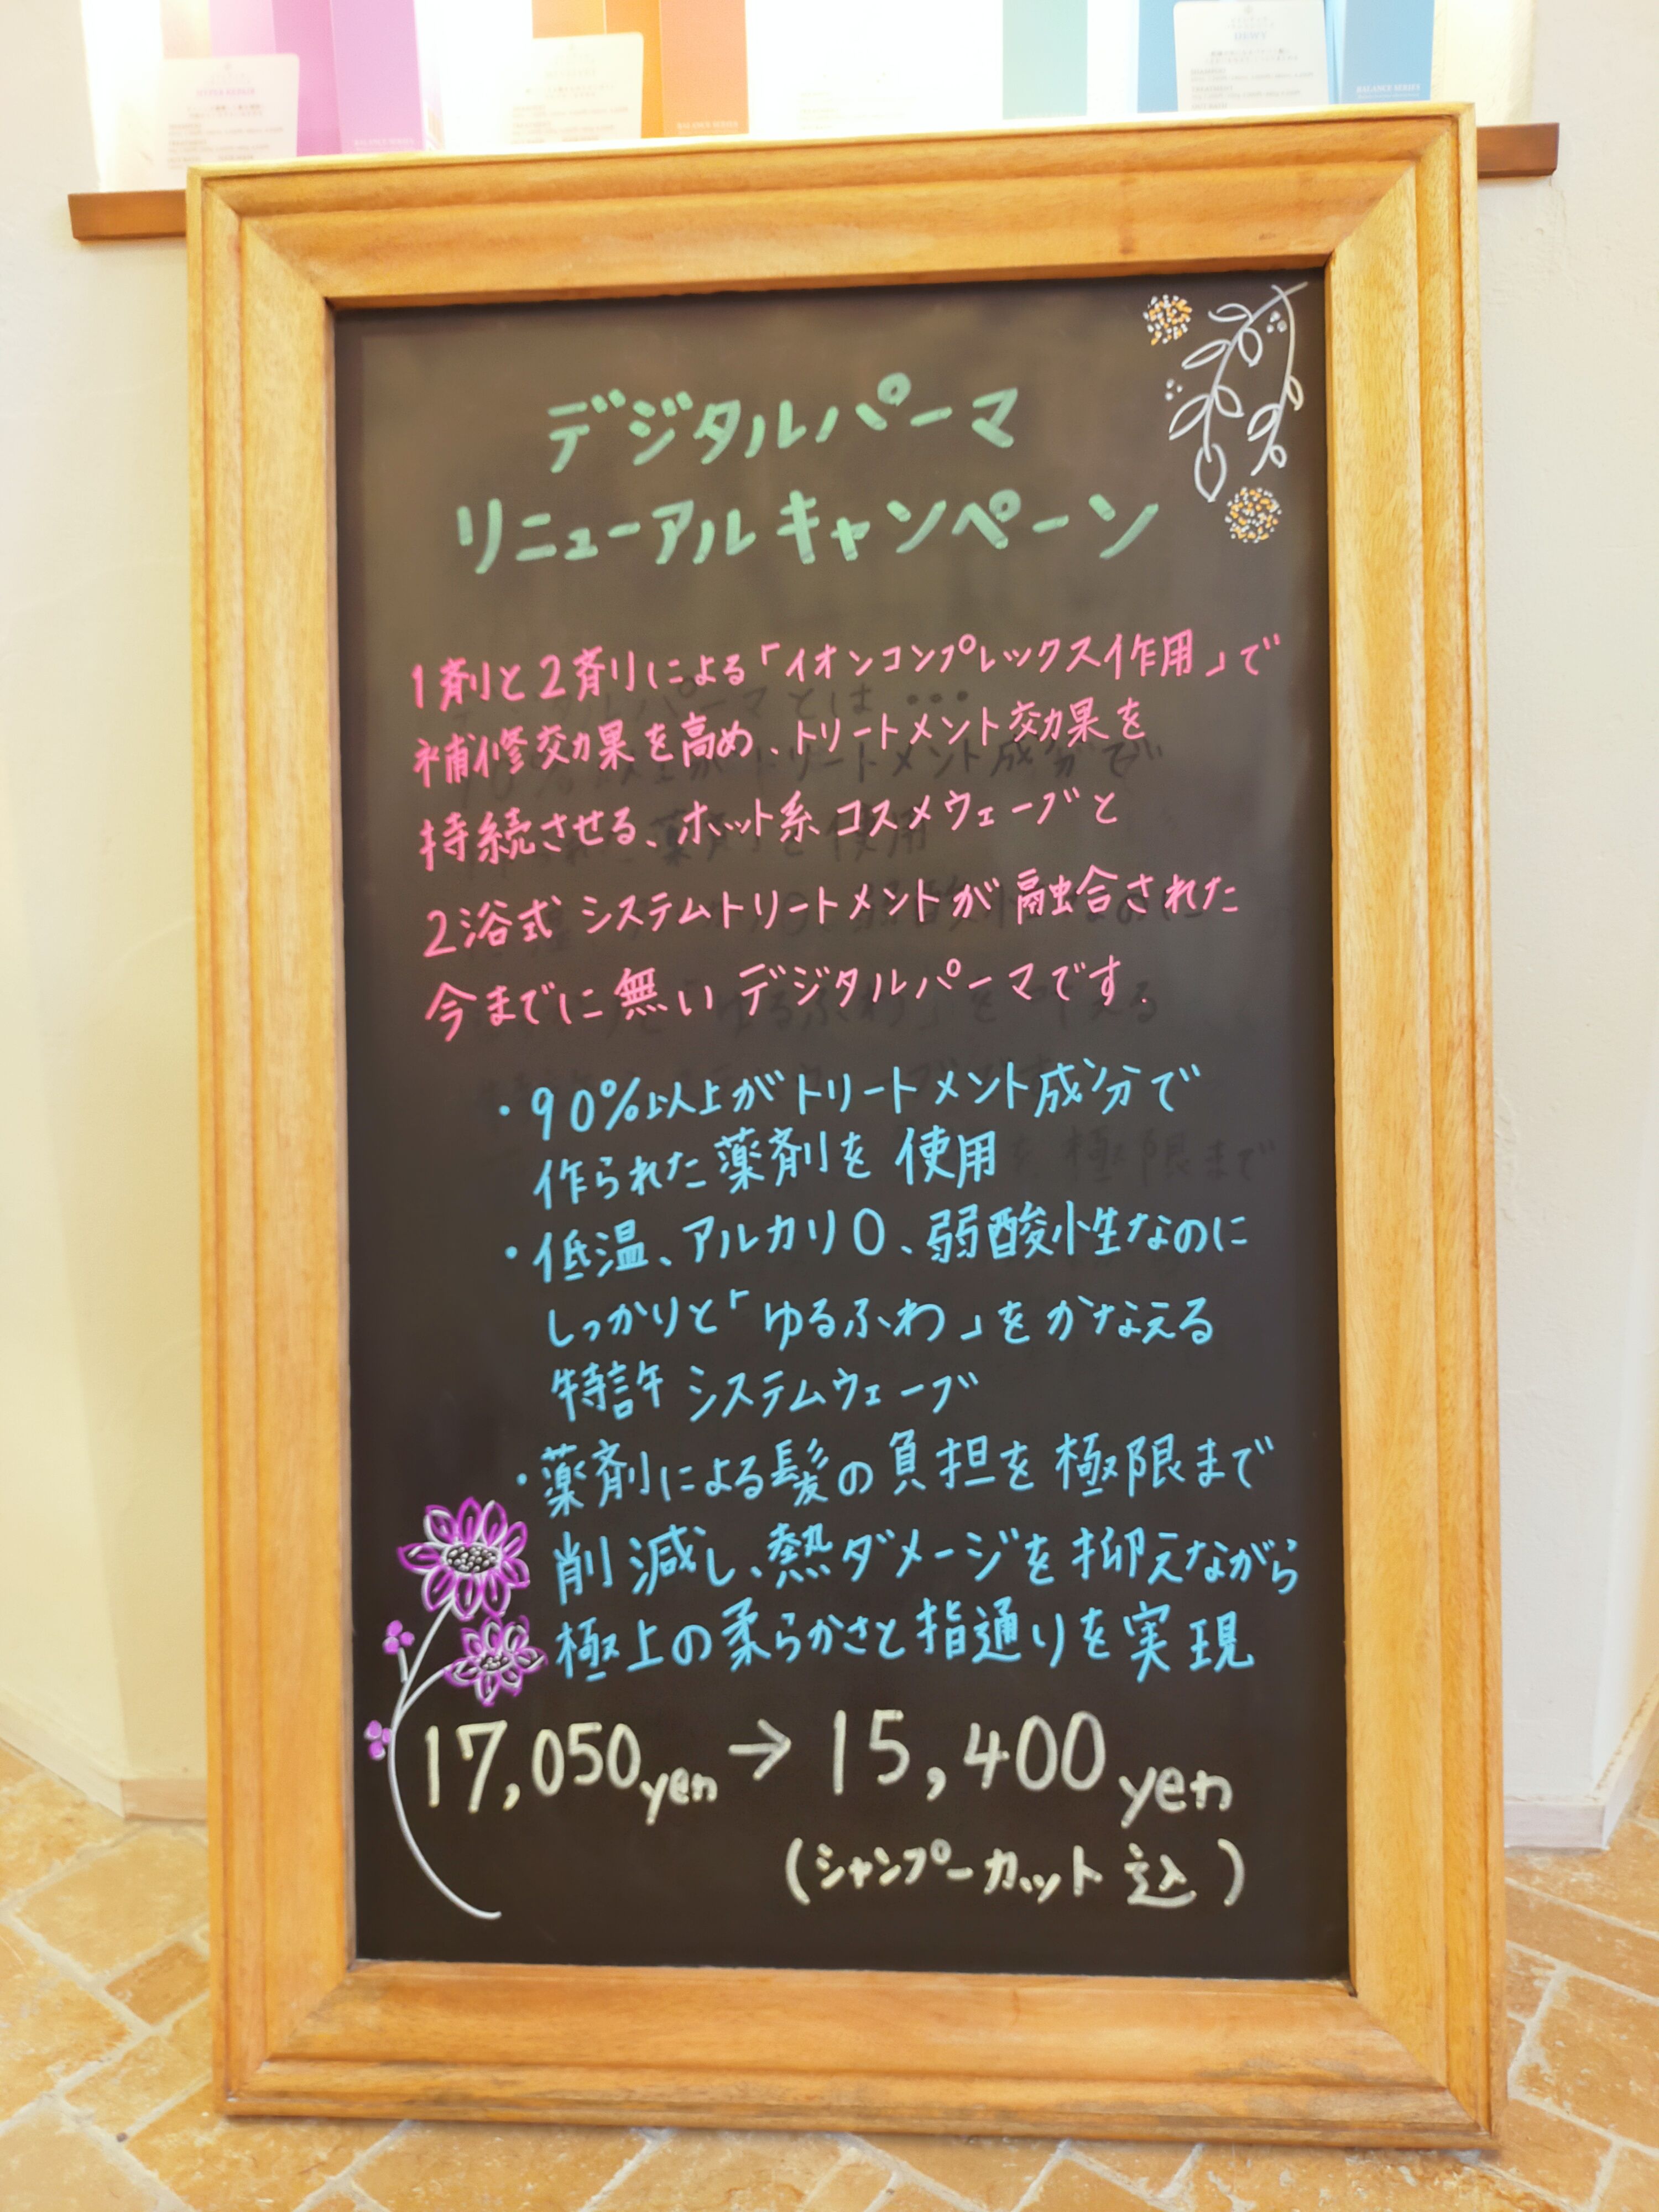 BALANCE SERIES
BALANCE SERIES
DEWY
BALANCE SERIES
デジタルパーマ
リニューアルキャンペーン
1剤と2剤による「イオンコンプレックス作用」で
補修効果を高め、トリートメント効果を
持続させる、ホット系コスメウェーブと
2浴式システムトリートメントが融合された
今までに無いデジタルパーマです.
・90%以上がトリートメント成分で
作られた薬剤を使用
・低温、アルカリ0、弱酸性なのに
しっかりと「ゆるふわ」をかなえる
特許システムウェーブ
・薬剤による髪の負担を極限まで
削減し、熱ダメージを抑えながら
極上の柔らかさと指通りを実現
17,050yen→15,400yen
(シャンプーカット込)